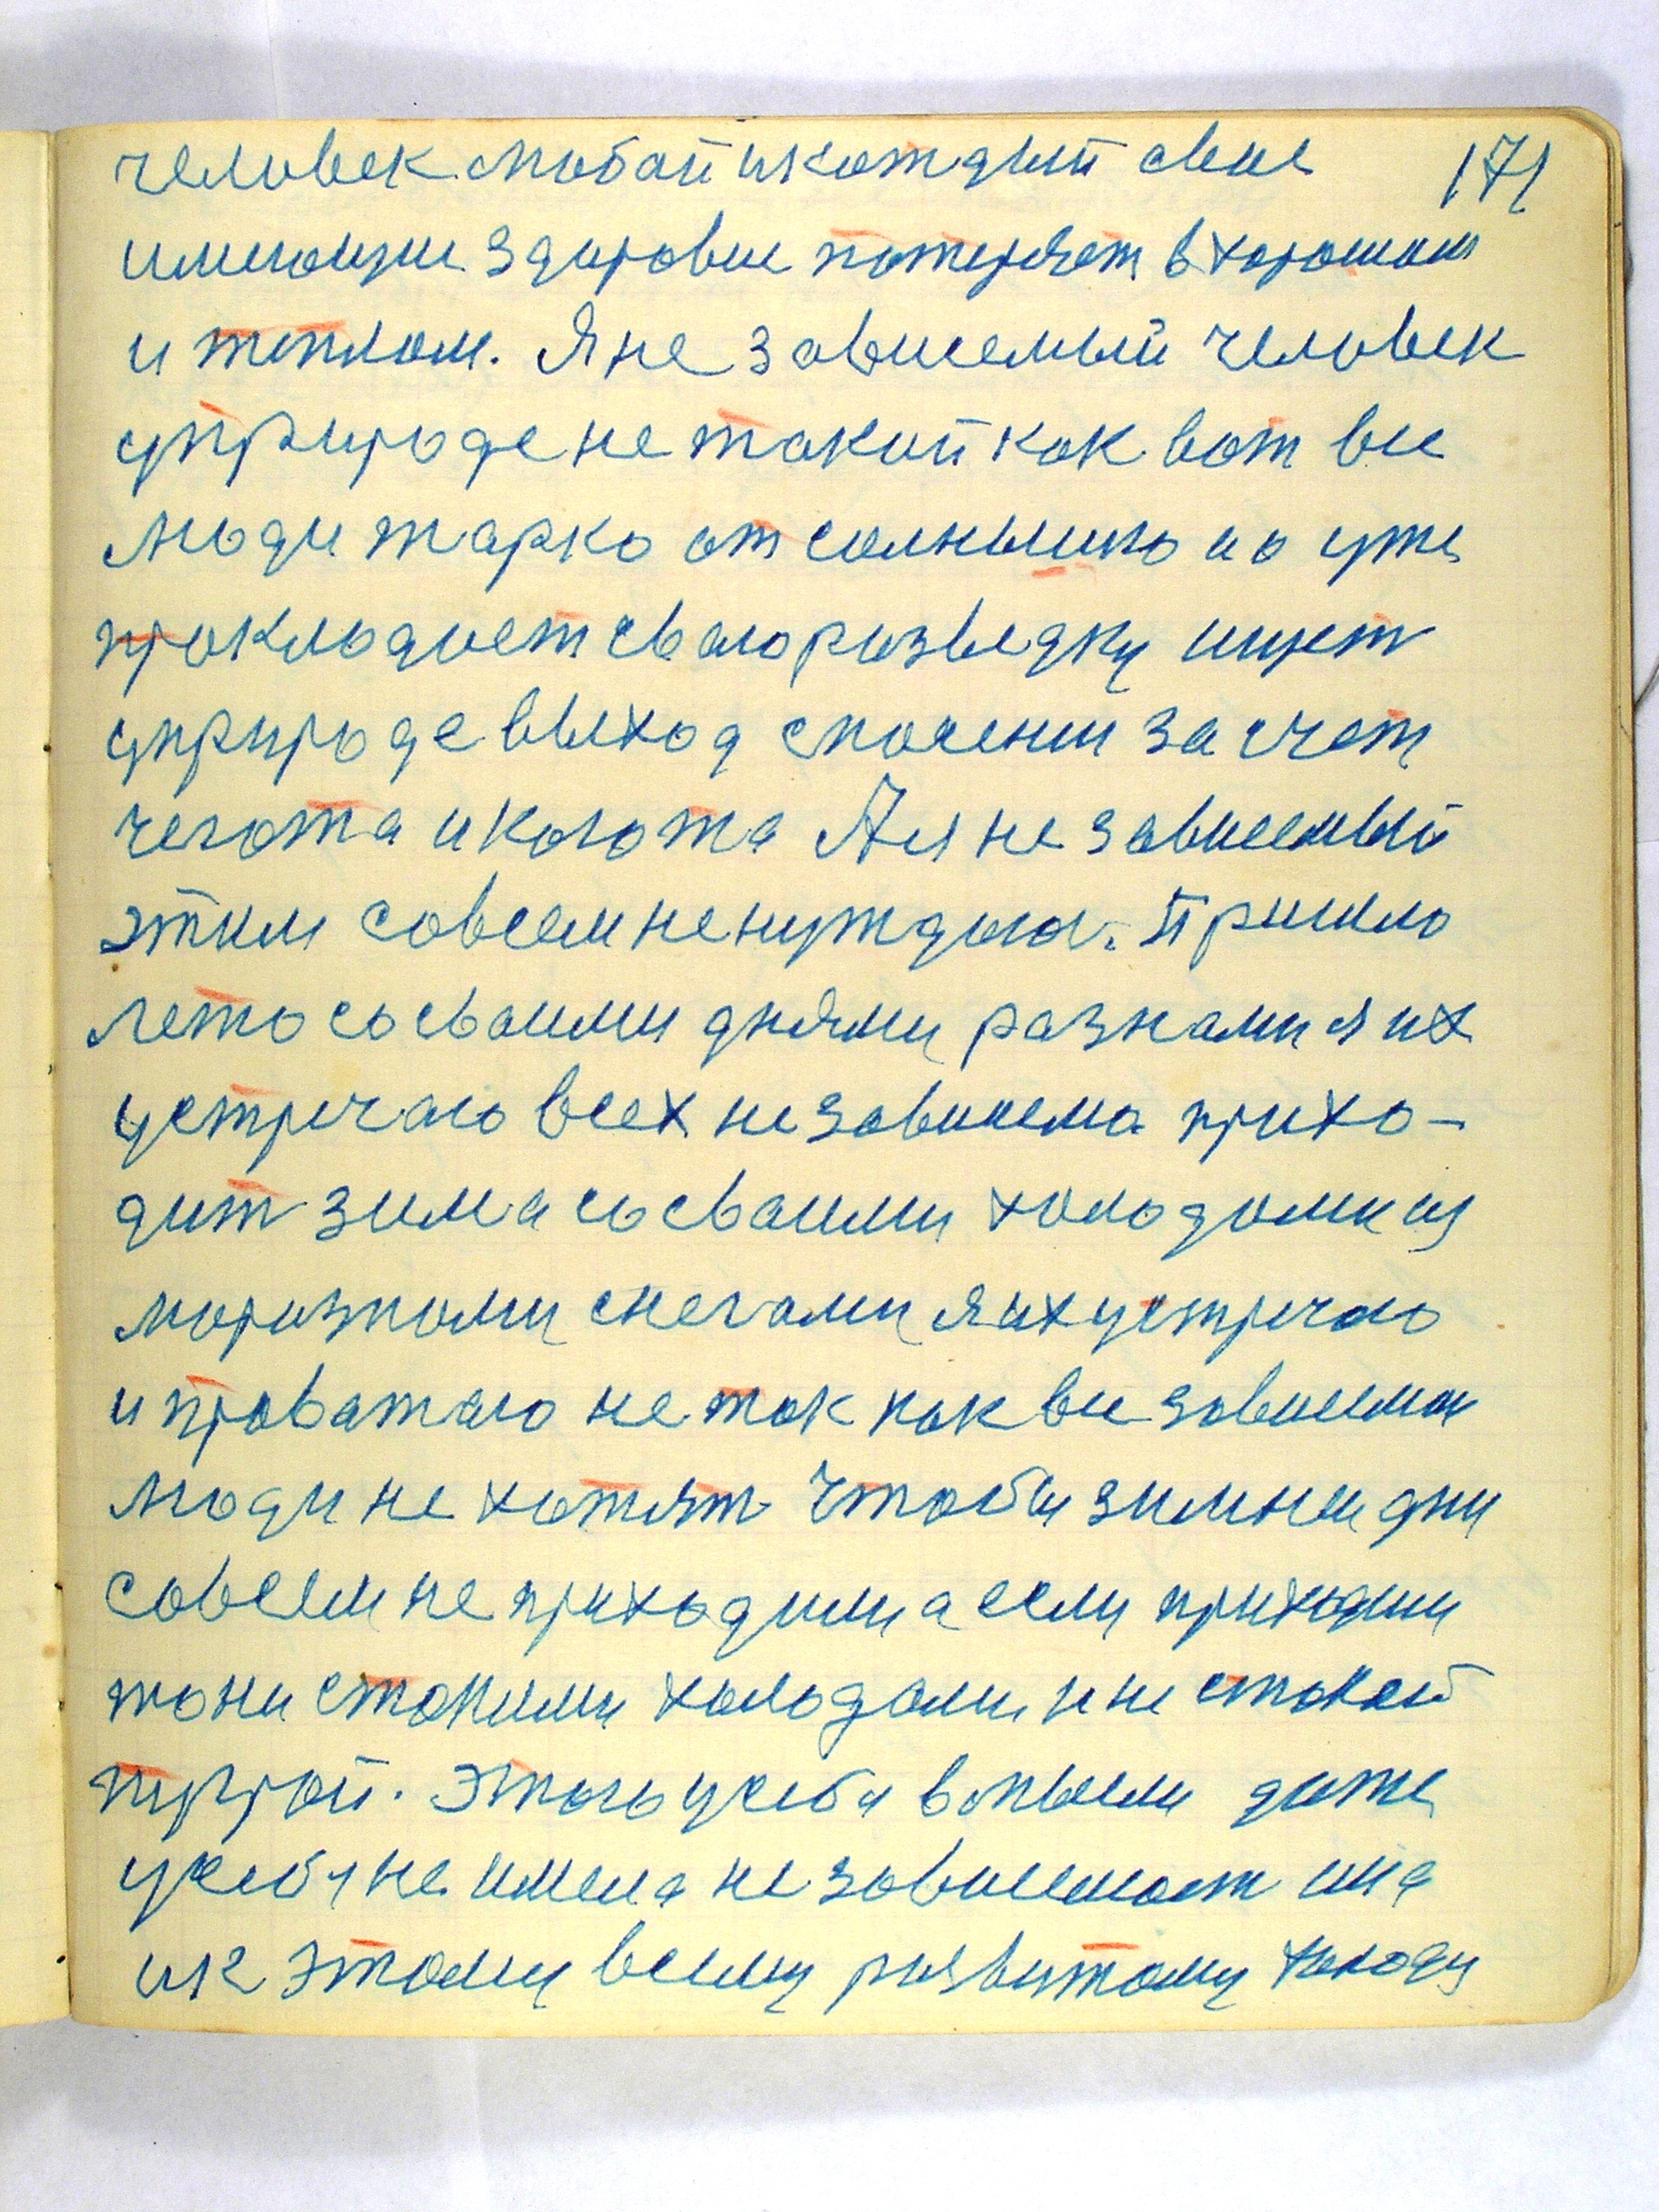 человек любой и каждый свае 171
имеющие здаровие патеряет в харошом
и теплом. Я не зависемый человек
у природе не такой как вот все
люди жарко от солнышко но уже
прокладует сваю разведку ищет
у природе выход спасении за счет
чегота и кагота А я не зависемый
этим совсем не нуждаюс. Пришло
лето со сваими днями разнами я их
устречаю всех не зависема прихо-
дит зима со сваими холодами из
марозными снегами я их устречаю
и праважаю не так как все зависемаи
люди не хотят чтобы зимнеи дни
совсем не приходили а если приходили
то не стакими холодами и не стакой
пургой. Этого у себя в мысли даже
у себя не имела не зависемаст ина
ик этому всему развитому холоду